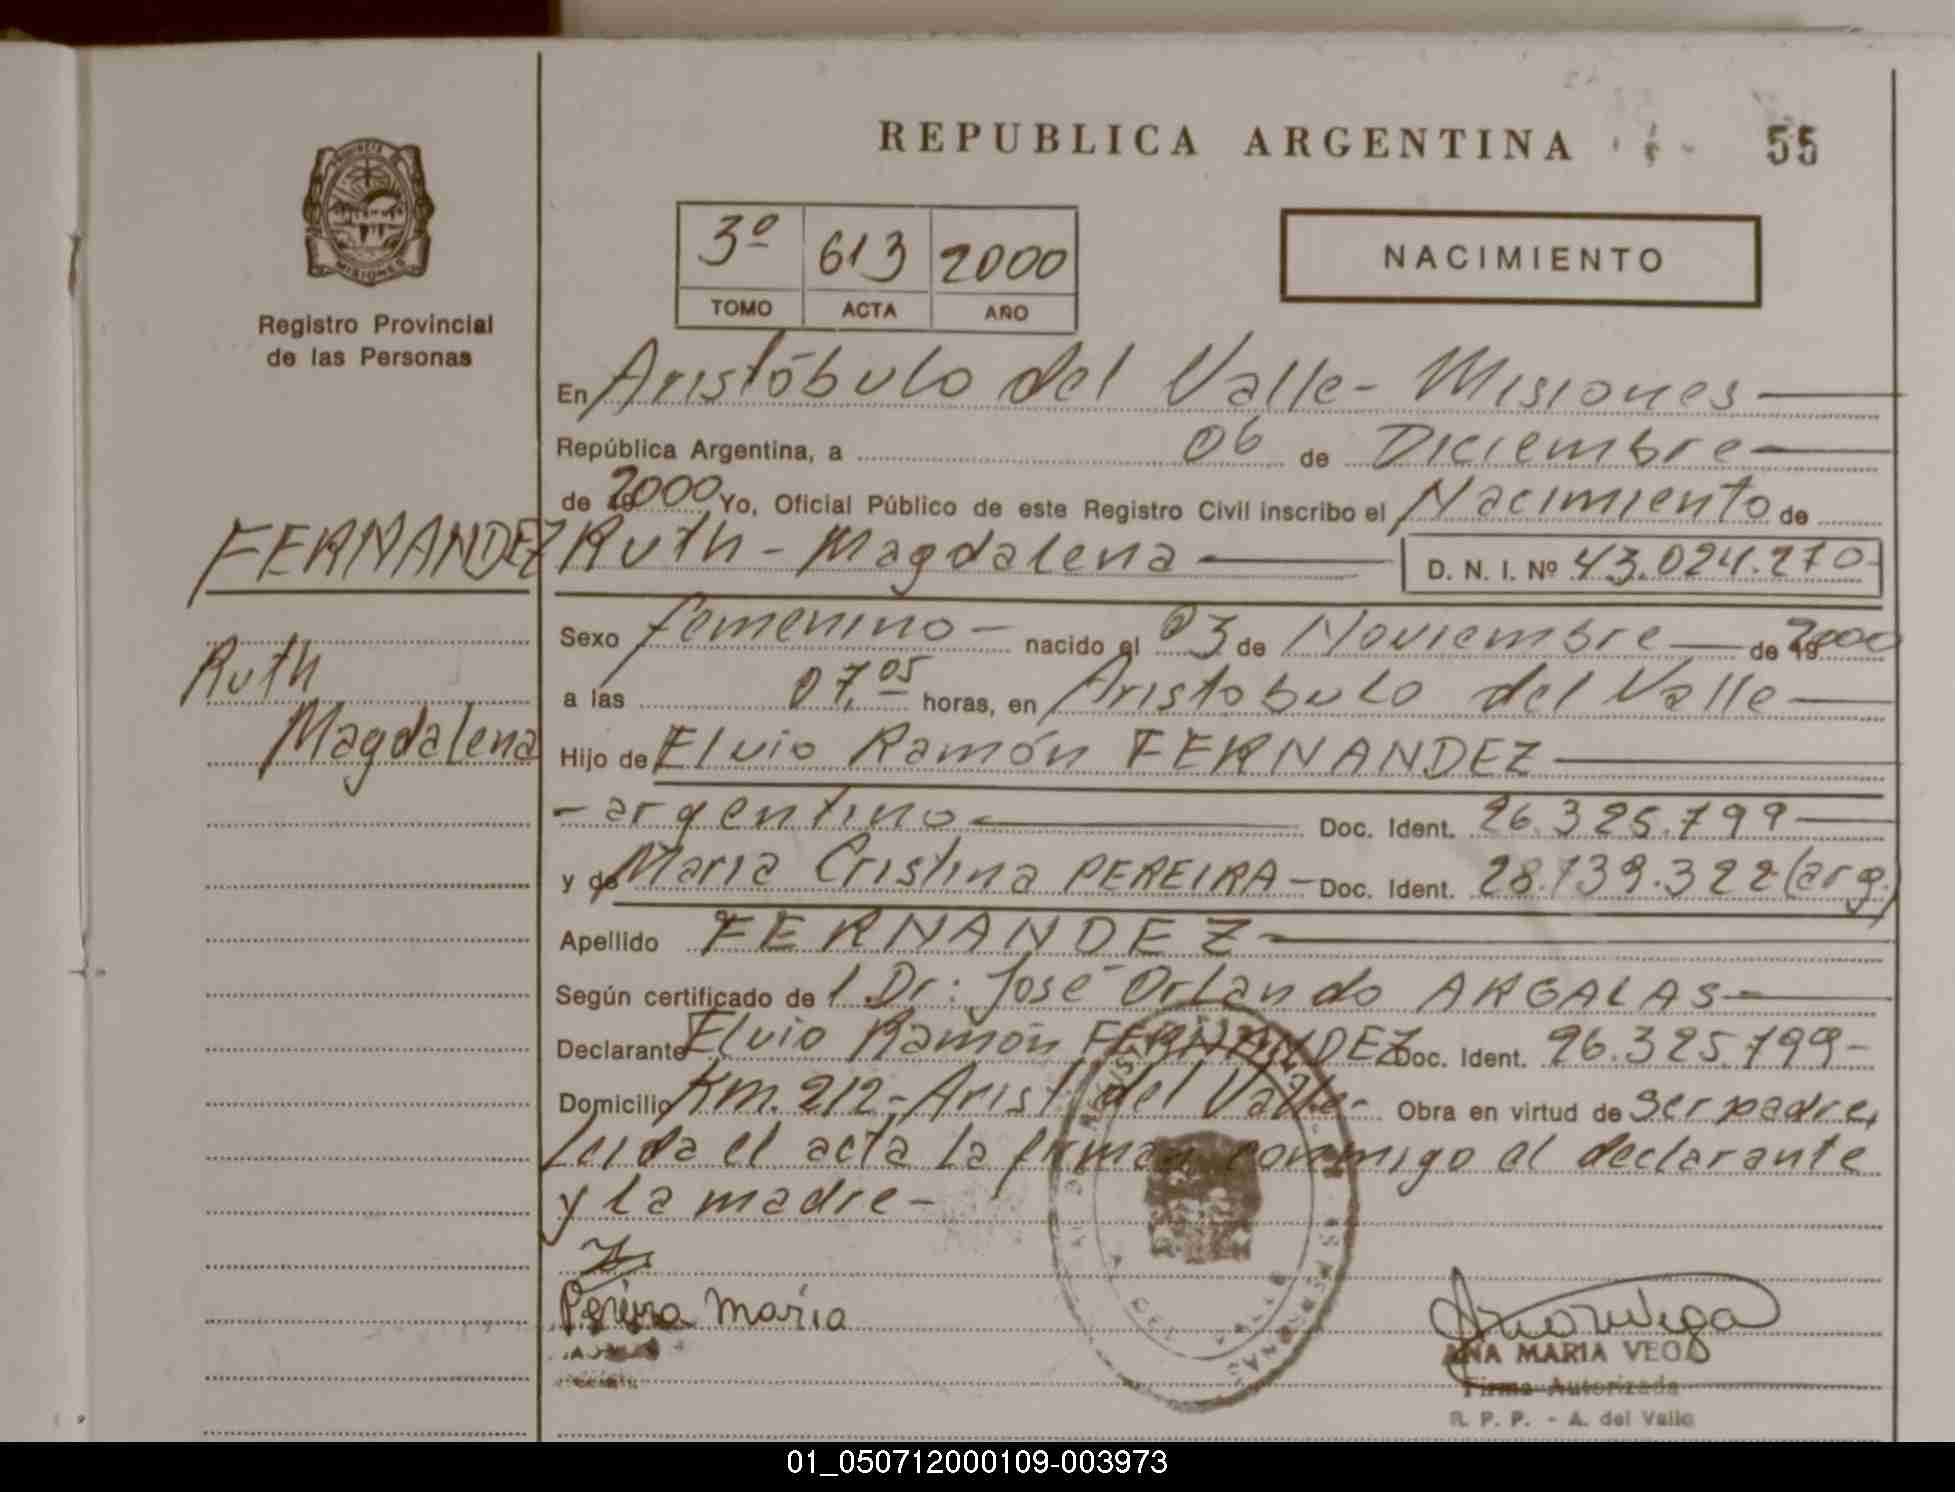 REPUBLICA ARGENTINA
55
PROVINCIA
MISIONES
Registro Provincial
de las Personas
3º 613 2000
TOMO ACTA AÑO
NACIMIENTO
En Aristóbulo del Valle - Misiones
República Argentina, a 06 de Diciembre
de 2000 Yo, Oficial Público de este Registro Civil inscribo el Nacimiento de
FERNANDEZ Ruth - Magdalena D. N. I. Nº 43.024.270
Ruth
Magdalena
Sexo femenino - nacido el 03 de Noviembre de 2000
a las 07,05 horas, en Aristobulo del Valle
Hijo de Elvio Ramón FERNANDEZ
- argentino - Doc. Ident. 26.325.799
y de Maria Cristina PEREIRA - Doc. Ident. 28.139.322 (arg.)
Apellido FERNANDEZ
Según certificado de l Dr: José Orlando ARGALAS
Declarante Elvio Ramón FERNANDEZ Doc. Ident. 26.325.799 -
Domicilio Km. 212 - Arist. del Valle - Obra en virtud de ser padre,
Leida el acta la firman conmigo el declarante
y la madre -
Pereira maria
ANA MARIA VEGA
Firma Autorizada
R. P. P. - A. del Valle
01_050712000109-003973